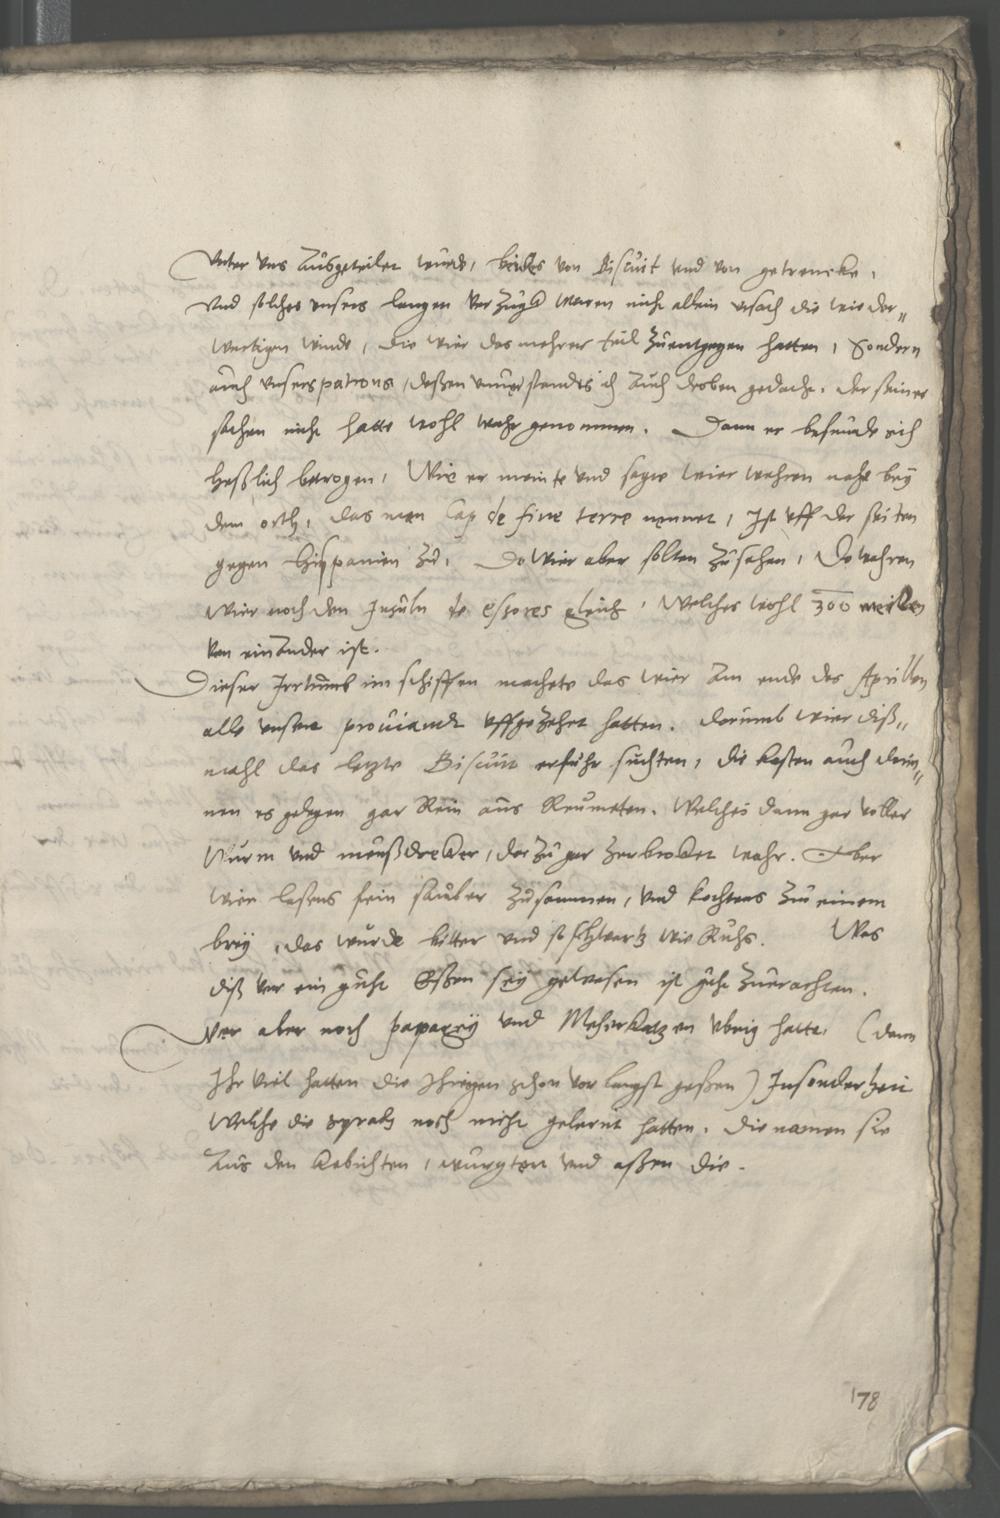 Unter uns Außgeteilet wurde, beides von Biscuit und von getrencke,
Und solches unsers langen verzugs waren nicht allein ursach die wieder„
wertigen winde, die wier das mehrer teil zuentgegen hatten, Sondern
auch unsers patrons, deßen unverstandts ich Auch droben gedacht. der seiner
sachen nicht hatte wohl wahr genommen. Dann er befunde sich
heßlich betrogen, Wie er meinte und sagte wier wehren nahe bey
dem orth, das man Cap de fine terre nennet, Ist uff der seiten
gegen Hispanien zu, Do wier aber solten zusehen, Do wahren
wier noch den Insuln de Essores gleich, Welches wohl 300 meilen
von einAnder ist.
Dieser Irrtumb im schiffen machete das wier Am ende des Aprillen
alle unsere proviandt uffgezehret hatten. Darumb wier diß„
mahl das letzte Biscuit erfuhr suchten, die kasten auch drin„
nen es gelegen gar Rein auß Reumeten. Welches dann gar voller
Wurm und meußdrecker, darzu gar zerbrocket wahr. Aber
wier lasens fein sauber zusammen, und kochtens zu einem
brey, das wurde bitter und so schwartz wie Ruhs. Was
diß vor ein guht Eßen sey gewesen ist guht zuerachten.
Wer aber noch papagey und Meherkatzen ubrig hatte, (dann
Ihr viel hatten die Ihrigen schon vor langst geßen) Insonderheit
Welche die sprach noch nicht gelernt hatten. Die namen sie
Aus den kebichten, wurgten und aßen die.
178